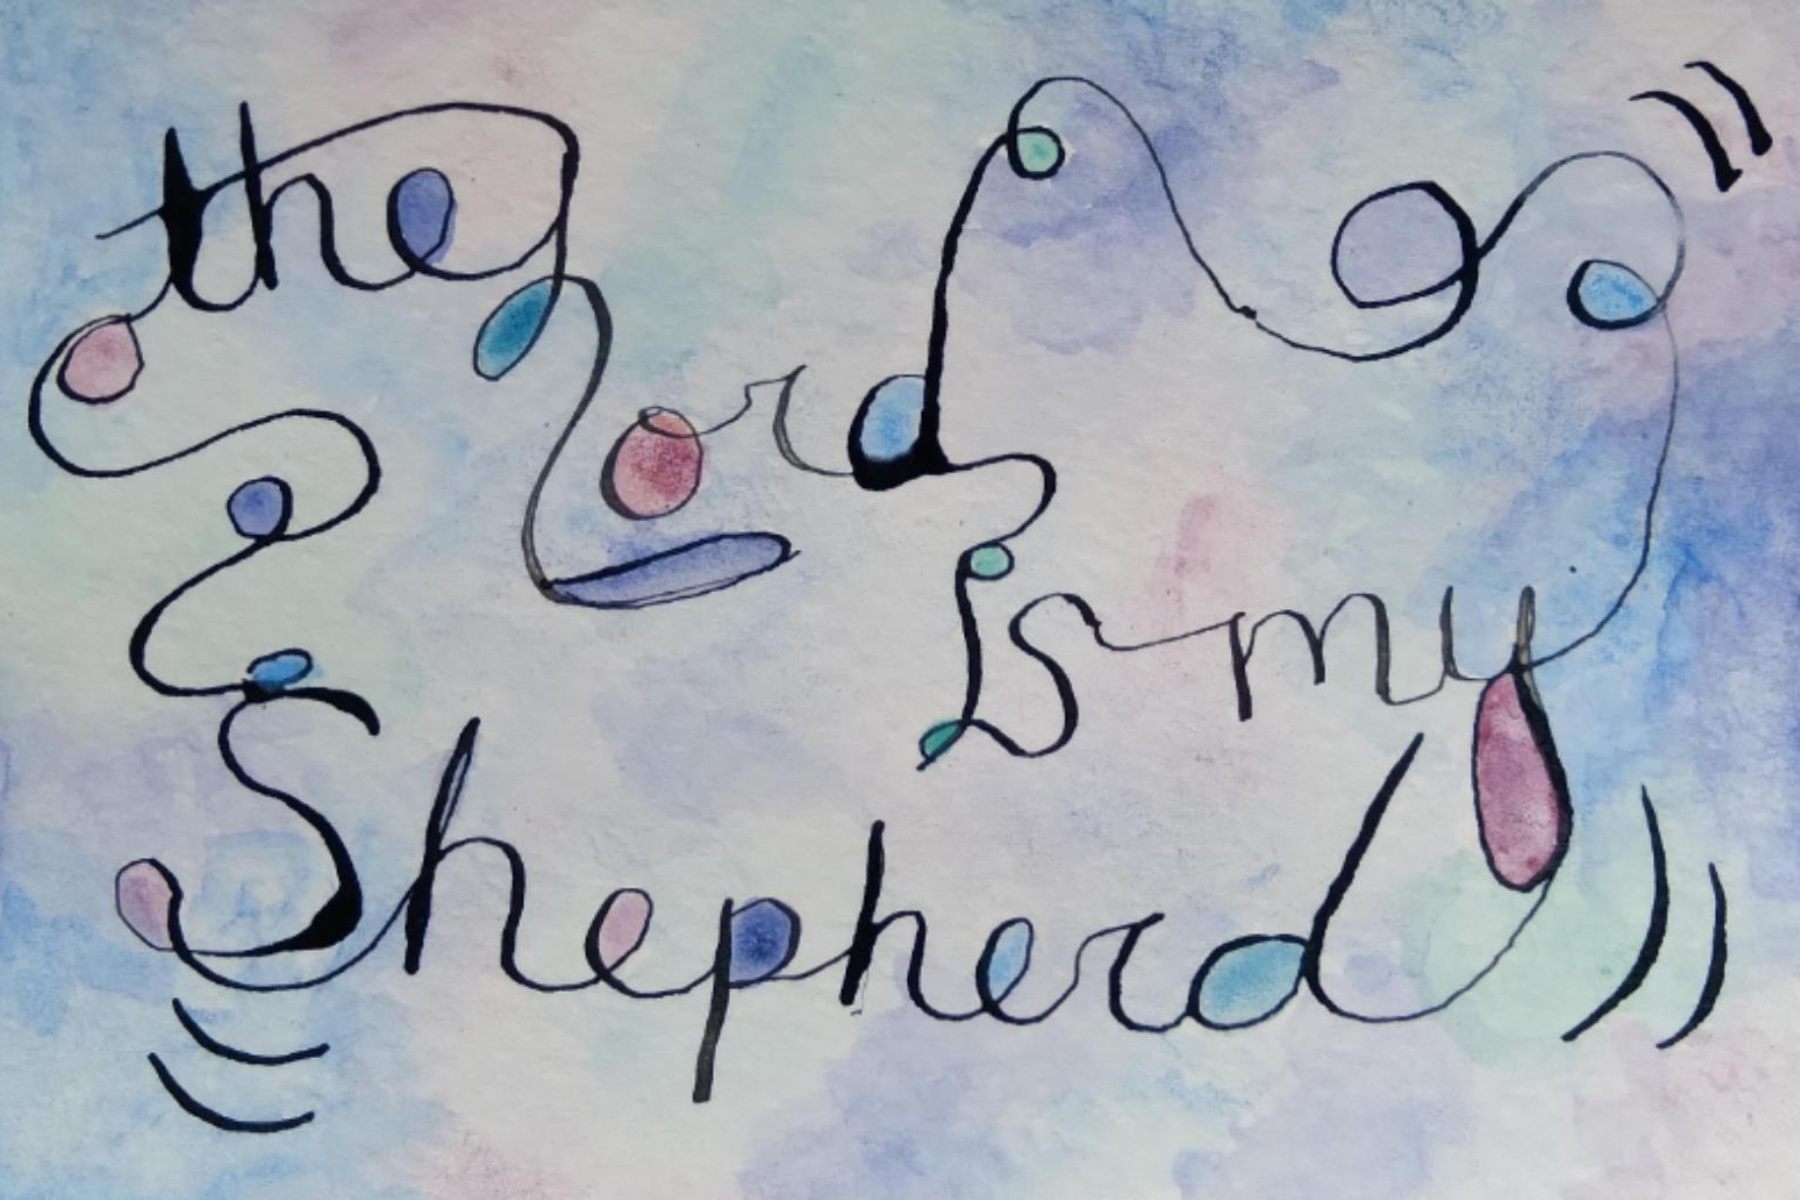 the
Lord
is my
Shepherd